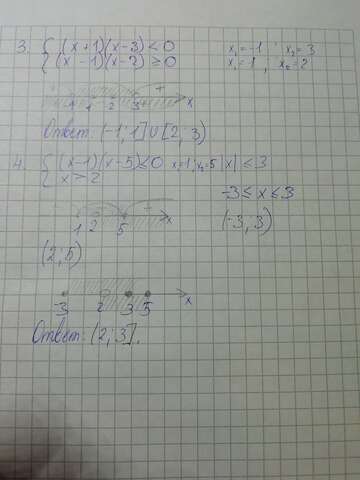 3. { (x+1)(x-3)<0    x₁=-1 ; x₂=3
{ (x-1)(x-2)≥0    x₁=1 ; x₂=2
-1 1 2 3 x
Ответ: (-1;1]∪[2;3)
4. { (x-1)(x-5)≤0 x=1; x₂=5 |x|≤3
{ x>2
-3≤x≤3
1 2 5 x
(-3;3)
(2;5)
-3 2 3 5 x
Ответ: (2;3].